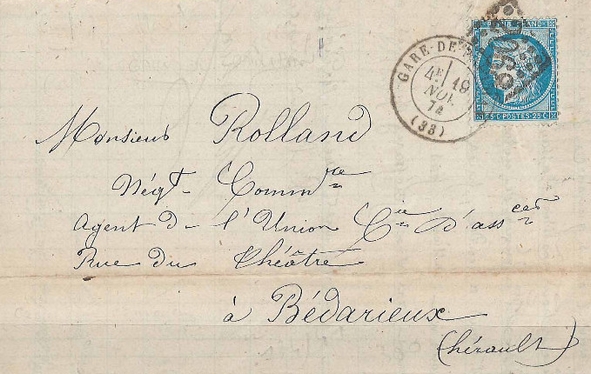 GARE-DE-
4E
19
NOV.
74
(33)
25 C POSTES 25 C
Monsieur Rolland
Négt Commre
Agent de l'Union Cie d'assces
Rue du Théâtre
à Bédarieux
(hérault)